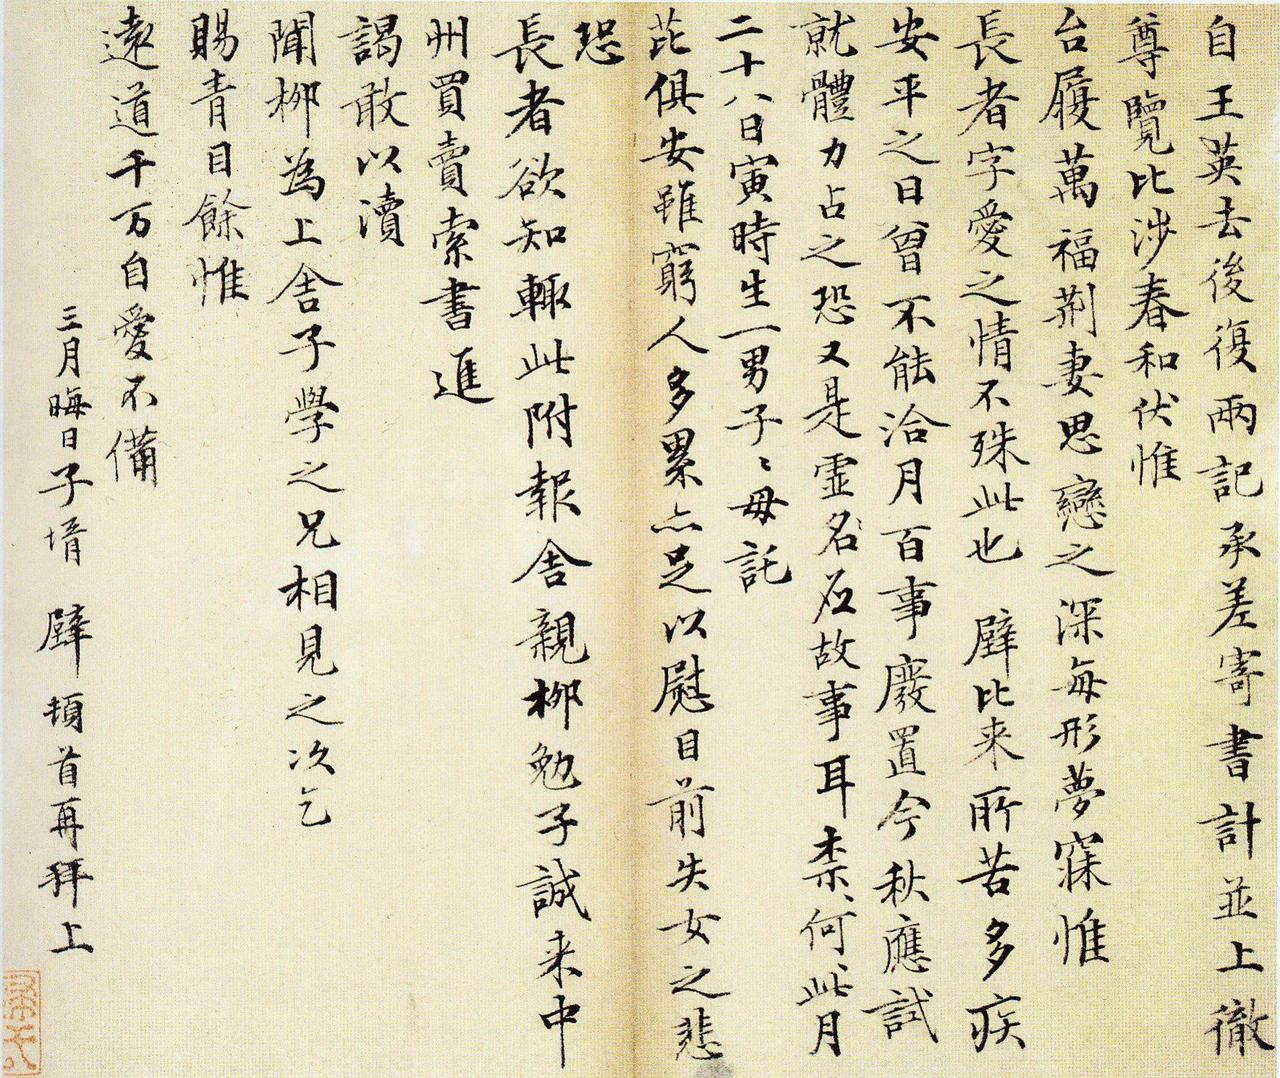 自王英去後復兩記承差寄書計並上徹
尊覽比涉春和伏惟
台履萬福荊妻思戀之深每形夢寐惟
長者字愛之情不殊此也 辟比来所苦多疾
安平之日曾不能洽月百事廢置今秋應試
就體力占之恐又是虛名应故事耳柰何柰何此月
二十八日寅時生一男子〻母託
芘俱安雖窮人多累亦足以慰目前失女之悲
恐
長者欲知輒此附報舍親柳勉子誠来中
州買賣索書進
謁敢以瀆
聞柳為上舍子學之兄相見之次乞
賜青目餘惟
遠道千万自愛不備
三月晦日子壻 辟 頓首再拜上